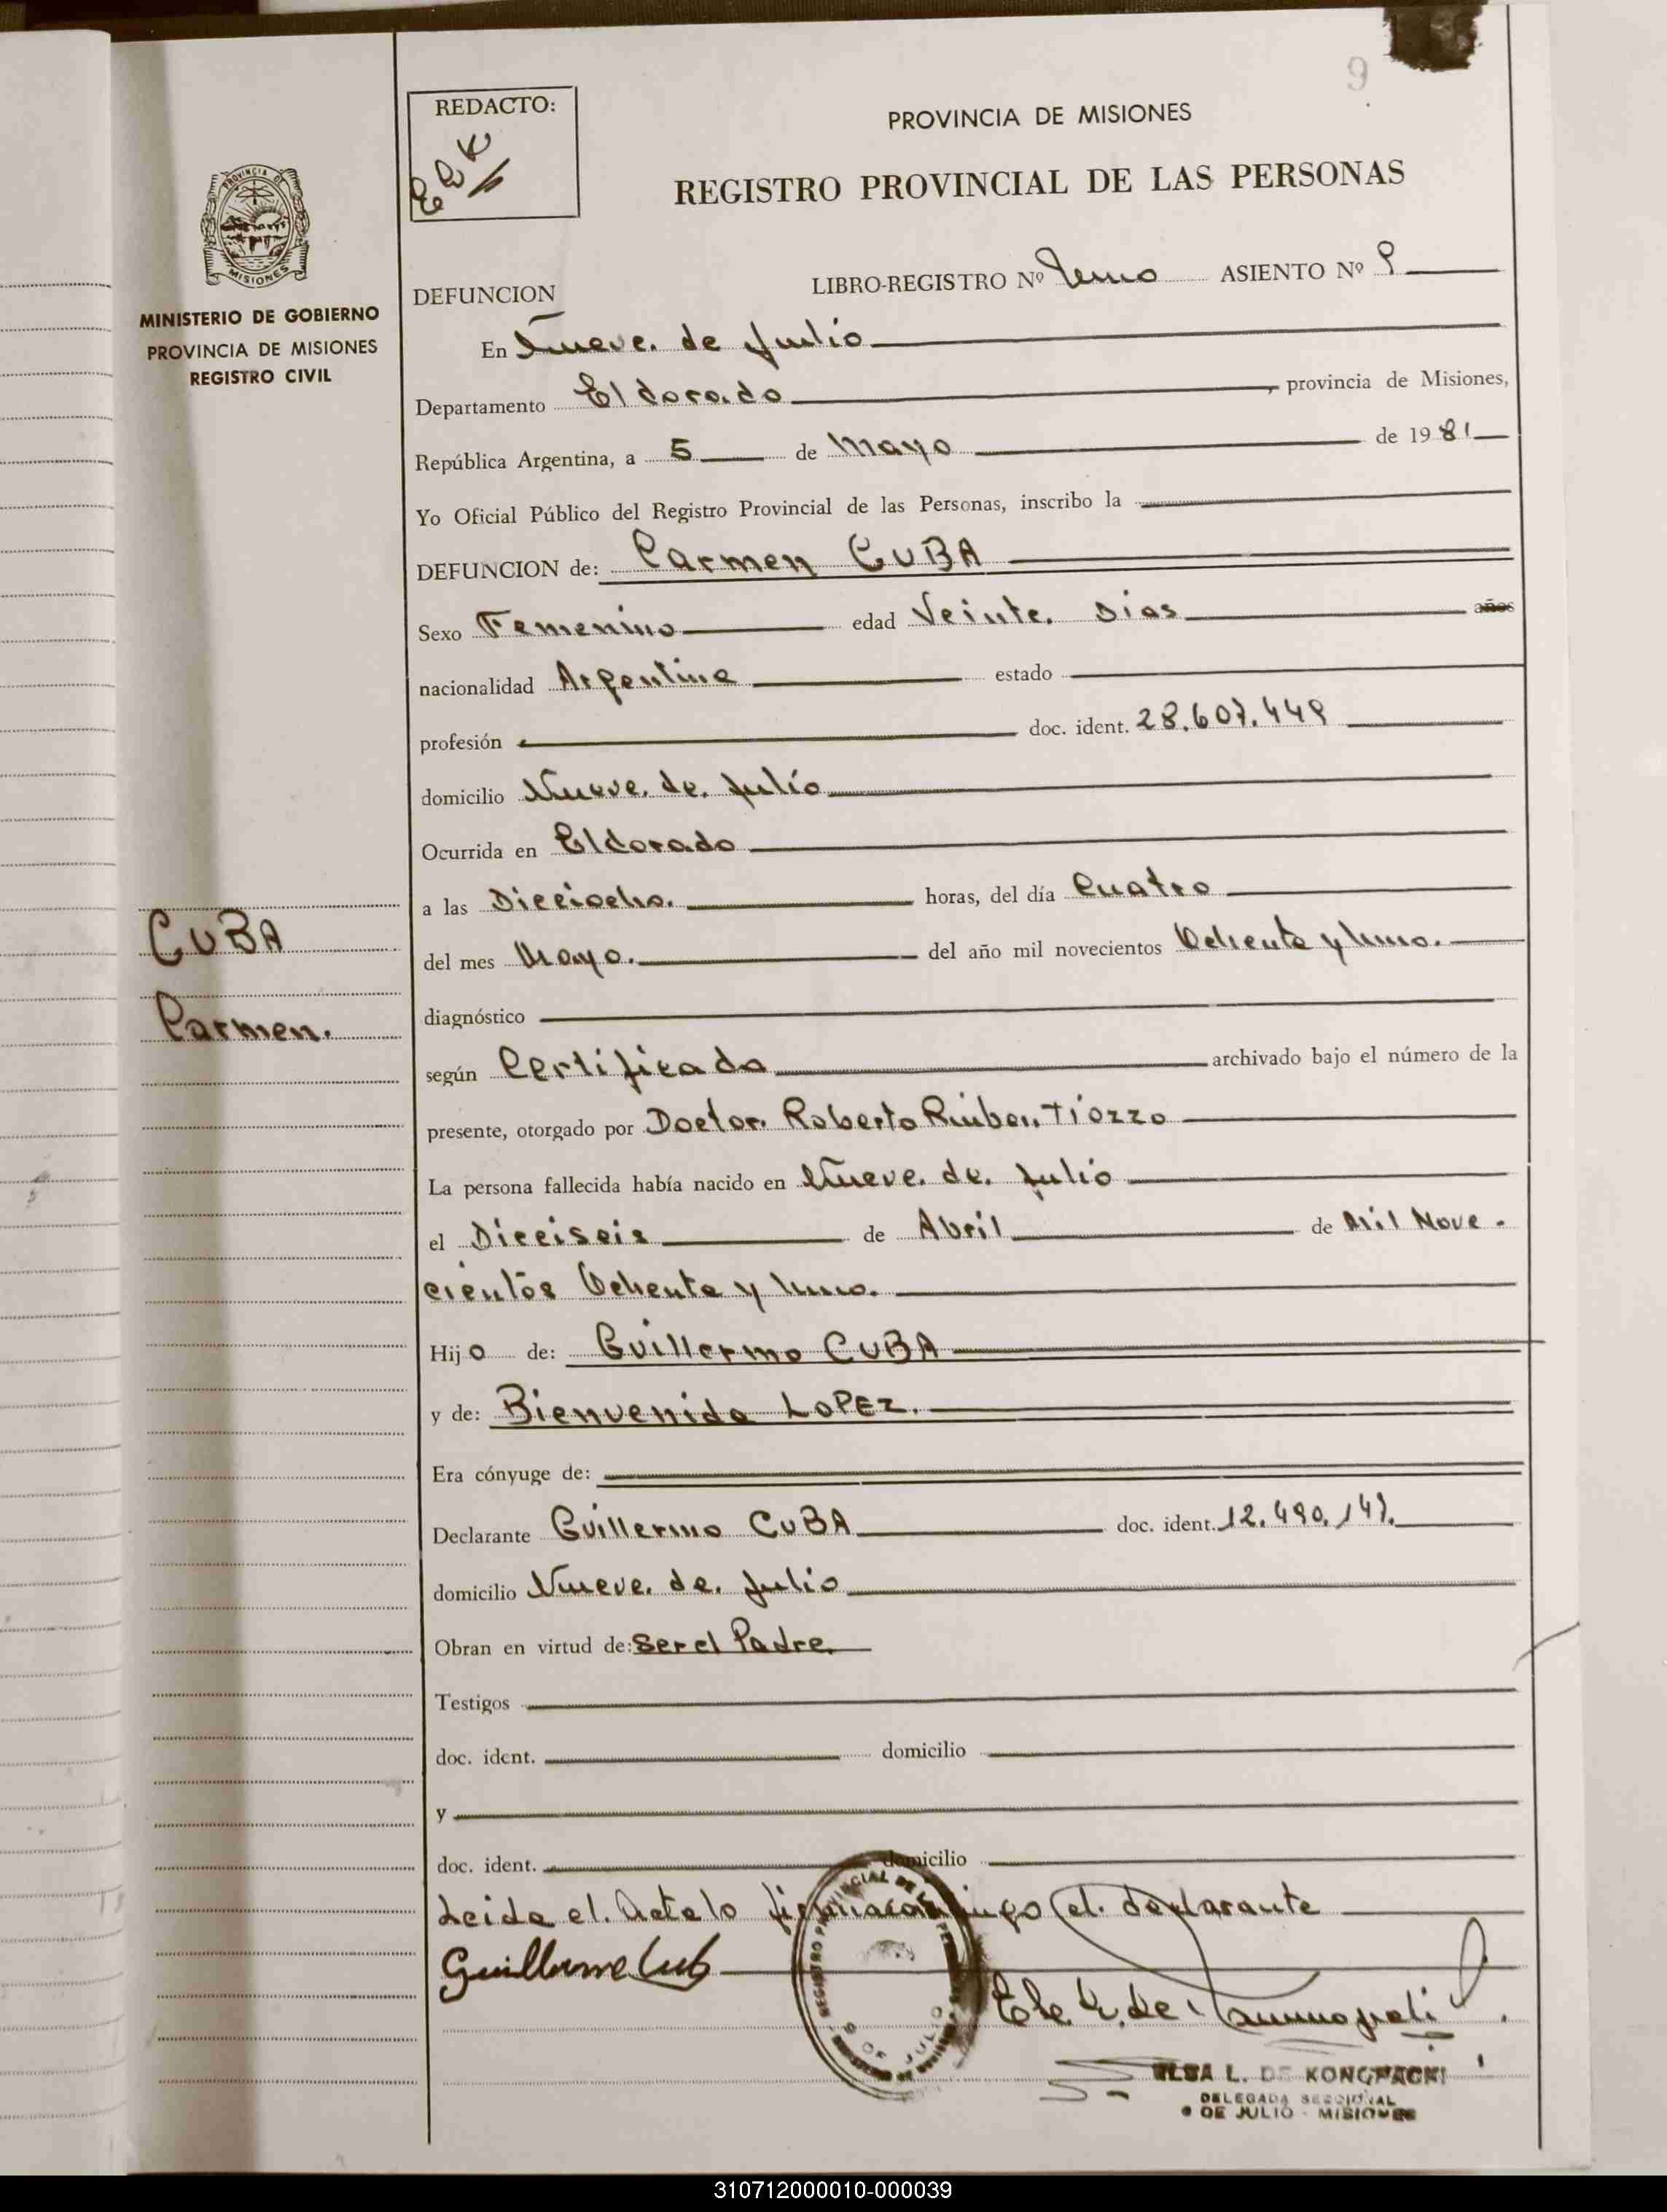 9
REDACTO:
PROVINCIA DE MISIONES
REGISTRO PROVINCIAL DE LAS PERSONAS
PROVINCIA DE MISIONES
MINISTERIO DE GOBIERNO
PROVINCIA DE MISIONES
REGISTRO CIVIL
DEFUNCION LIBRO-REGISTRO Nº Uno ASIENTO Nº 9
En Nueve de Julio
Departamento Eldorado, provincia de Misiones,
República Argentina, a 5 de Mayo de 1981
Yo Oficial Público del Registro Provincial de las Personas, inscribo la
DEFUNCION de: Carmen CUBA
Sexo Femenino edad Veinte Dias años
nacionalidad Argentina estado
profesión doc. ident. 28.607.449
domicilio Nueve de Julio
Ocurrida en Eldorado
a las Dieciocho. horas, del día Cuatro
CUBA
del mes Mayo. del año mil novecientos Ochenta y Uno.
diagnóstico
Carmen.
según Certificado archivado bajo el número de la
presente, otorgado por Doctor Roberto Ruben Tiozzo
La persona fallecida había nacido en Nueve de Julio
el Dieciseis de Abril de Mil Nove-
cientos Ochenta y Uno.
Hijo de: Guillermo CUBA
y de: Bienvenida LOPEZ.
Era cónyuge de:
Declarante Guillermo CUBA doc. ident. 12.490.147.
domicilio Nueve de Julio
Obran en virtud de: Ser el Padre
Testigos
doc. ident. domicilio
y
doc. ident. domicilio
Leida el Acta lo firma conmigo el declarante
Guillermo Cub
ELSA L. DE KONOPACKI
DELEGADA SECCIONAL
9 DE JULIO - MISIONES
310712000010-000039